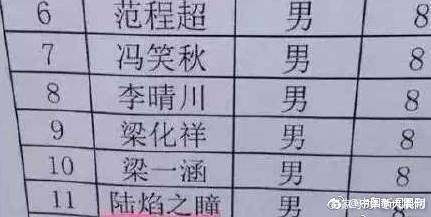 6 范程超 男 8
7 冯笑秋 男 8
8 李晴川 男 8
9 梁化祥 男 8
10 梁一涵 男 8
11 陆焰之瞳 男